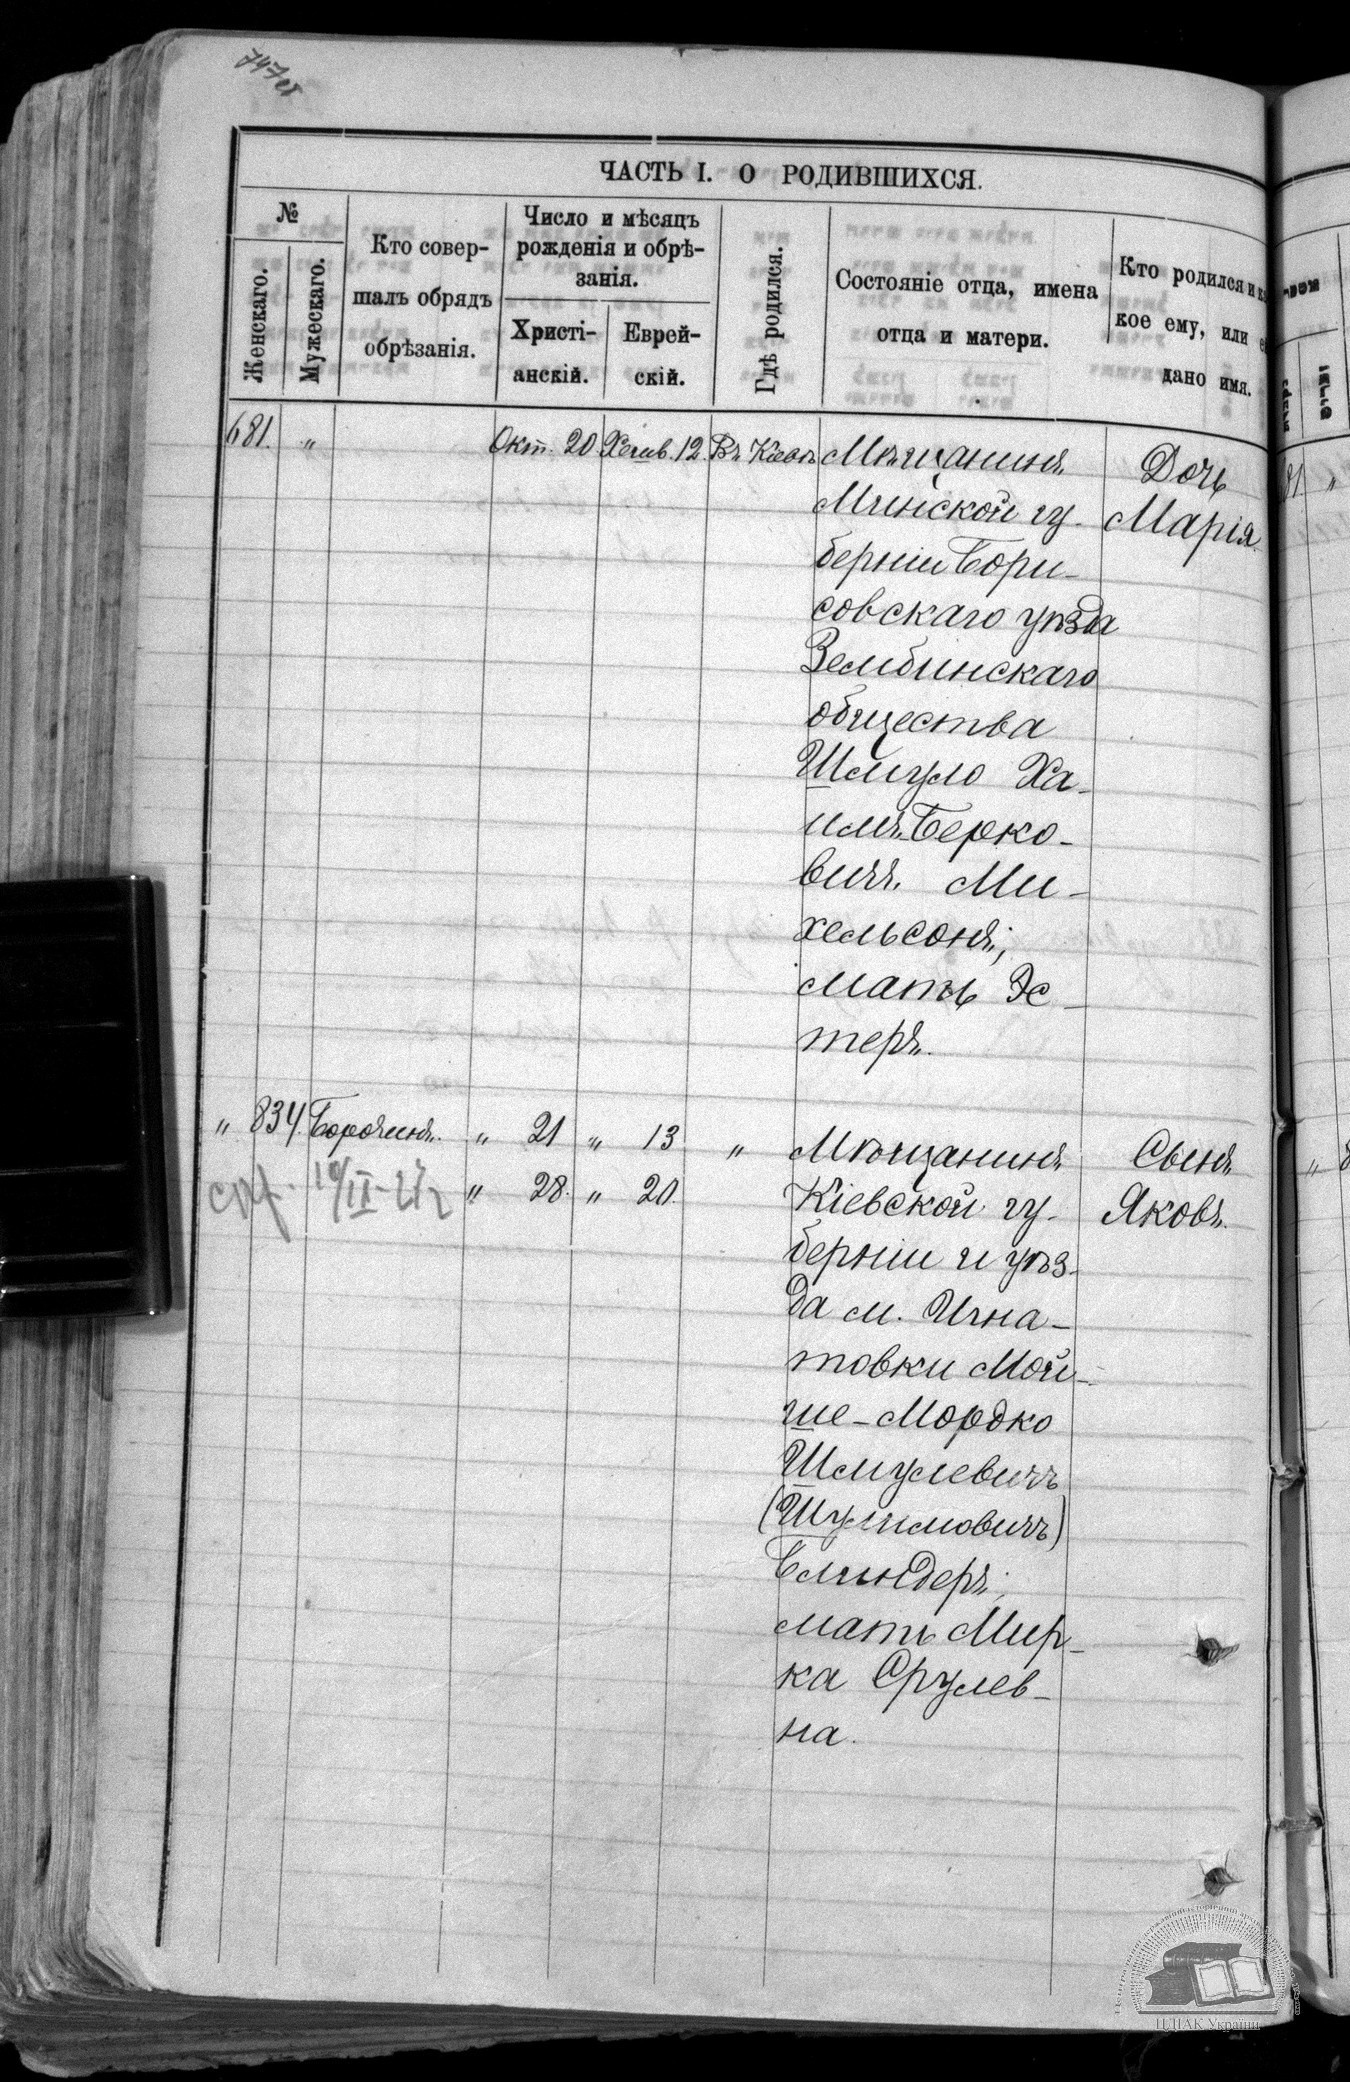 747 об
ЧАСТЬ I. О РОДИВШИХСЯ.
№
Женскаго.
Мужескаго.
Кто совер-
шалъ обрядъ
обрѣзанія.
Число и мѣсяцъ
рожденія и обрѣ-
занія.
Христі-
анскій.
Еврей-
скій.
Гдѣ родился.
Состояніе отца, имена
отца и матери.
Кто родился и ка
кое ему, или е
дано имя.
681. " Окт. 20 Хешв. 12. Въ Кіевѣ Мѣщанинъ Дочь
Минской гу- Марія.
берніи Бори-
совскаго уѣзда
Зембинскаго
общества
Шмуло Ха-
имъ Берко-
вичъ Ми-
хельсонъ;
мать Эс-
теръ.
" 834. Бородкинъ. " 21 " 13 " Мѣщанинъ Сынъ
" 28. " 20. Кіевской гу- Яковъ.
берніи и уѣз-
да м. Игна-
товки Мой-
ше-Мордко
Шмулевичъ
(Шулимовичъ)
Блиндеръ;
мать Мир-
ка Срулев-
на.
ЦДІАК України